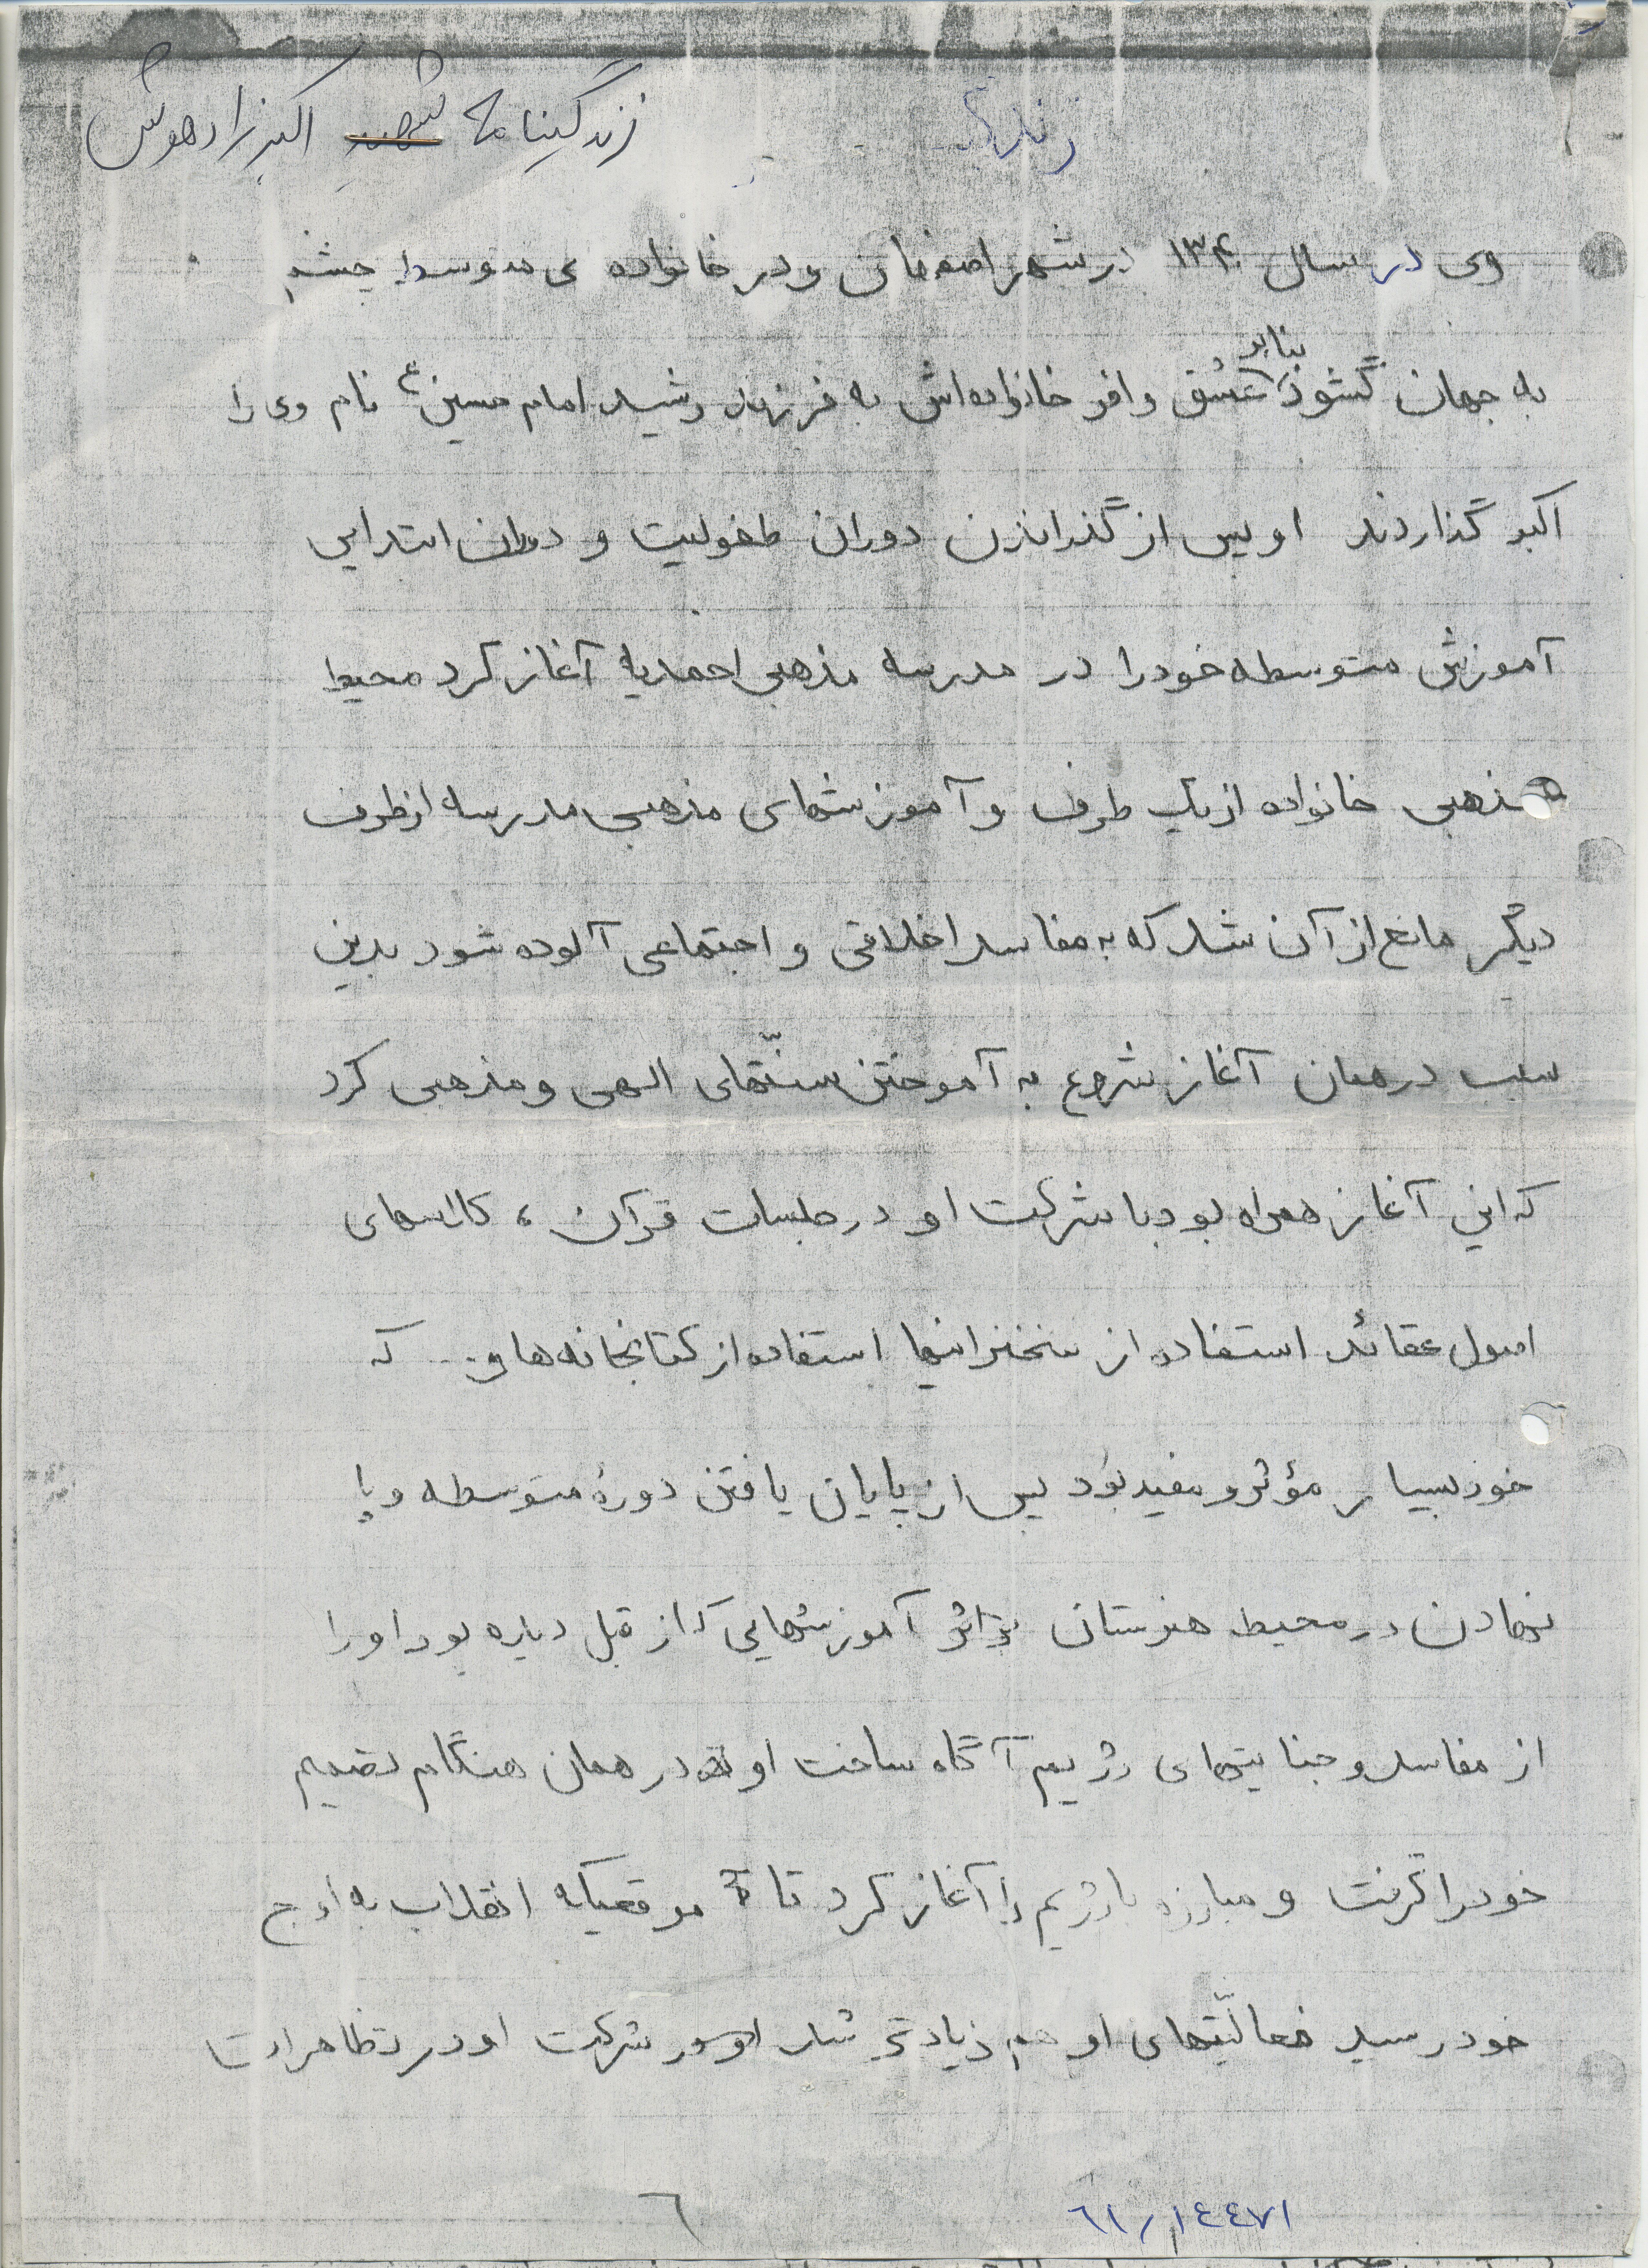 زندگینامه شهید اکبر زارهوش
زندگی
وی در سال ۱۳۴۰ در شهر اصفهان و در خانواده ی متوسط چشم
به جهان گشود بنابر عشق وافر خانواده‌اش به فرزند رشید امام حسین ع نام وی را
اکبر گذاردند او پس از گذراندن دوران طفولیت و دوران ابتدایی
آموزش متوسطه خود را در مدرسه مذهبی احمدیه آغاز کرد محیط
مذهبی خانواده از یک طرف و آموزشهای مذهبی مدرسه از طرف
دیگر مانع از آن شد که به مفاسد اخلاقی و اجتماعی آلوده شود بدین
سبب در همان آغاز شروع به آموختن سنّتهای الهی و مذهبی کرد
که این آغاز همراه بود با شرکت او در جلسات قرآن ، کلاسهای
اصول عقائد استفاده از سخنرانیها استفاده از کتابخانه ها و... که
خود بسیار مؤثر و مفید بود پس از پایان یافتن دورهٔ متوسطه و پا
نهادن در محیط هنرستان بر اثر آموزشهایی که از قبل دیده بود او را
از مفاسد و جنایتهای رژیم آگاه ساخت او در همان هنگام تصمیم
خود را گرفت و مبارزه با رژیم را آغاز کرد تا موقعیکه انقلاب به اوج
خود رسید فعالیّتهای او هم زیادتر شد شرکت او در تظاهرات
٦١/١٤٤٧١
٦